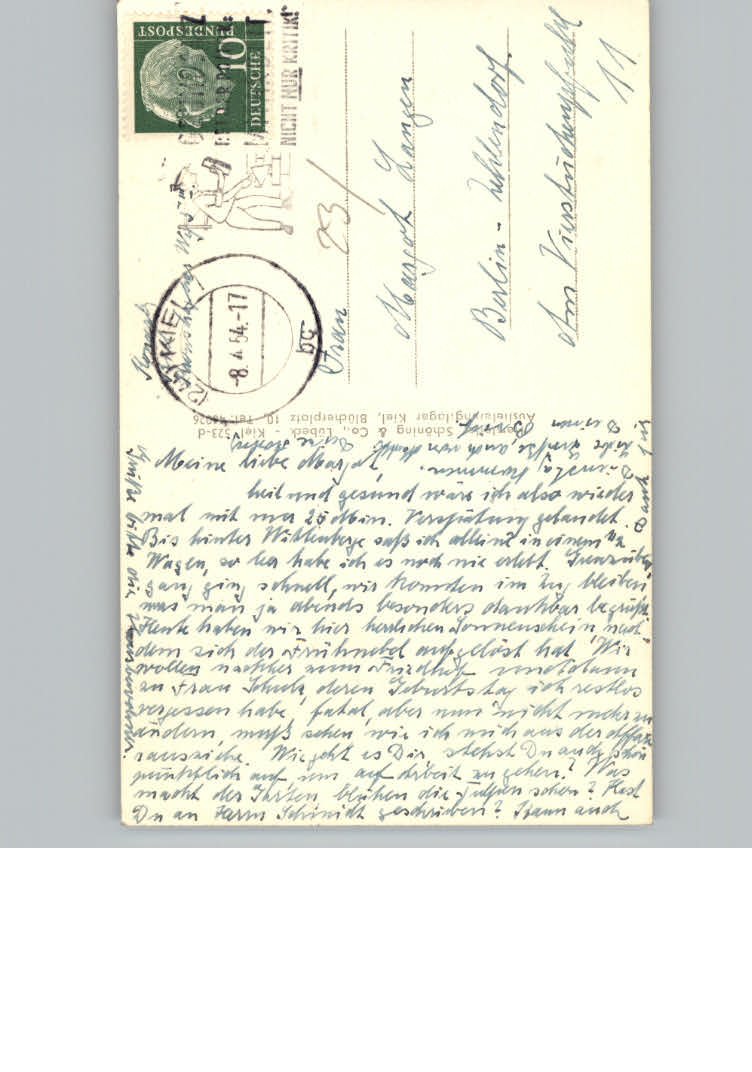 Meine liebe Margot,
heil und gesund wäre ich also wieder
mal mit nur 25 Min. Verspätung gelandet.
Bis hinter Wittenberge saß ich allein in einem
Wagen, so leer habe ich es noch nie erlebt. Grenzüber
gang ging schnell, wir konnten im Zug bleiben
was man ja abends besonders dankbar begrüßt.
Heute haben wir hier herrlichen Sonnenschein nach
dem sich der Frühnebel aufgelöst hat. Wir
wollen nachher zum Friedhof und dann
zu Frau Schulz, deren Geburtstag ich restlos
vergessen habe, fatal, aber nun nicht mehr zu
ändern, muß sehen wie ich mich aus der Affäre
rausziehe. Wie geht es Dir, stehst Du auch schön
pünktlich auf um auf Arbeit zu gehen? Was
macht der Garten blühen die Tulpen schon? Hast
Du an Herrn Schmidt geschrieben? Kann auch
Grüße bitte
Dank für
Deinen Brief
Liebe Grüße, auch von
Schöning & Co., Lübeck
Auslieferungslager Kiel, Blücherplatz 10, Tel. 46026
Kiel 523-d
DEUTSCHE
BUNDESPOST
10
NICHT NUR KRITIK!
KIEL
-8. 4. 54.-17
bg
23/
Frau
Margot Langen
Berlin-Zehlendorf
Am Vierstückenpfuhl
11